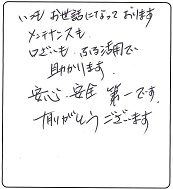 いつも お世話になって おります
メンテナンスも
口ざいも 活用で
助かります.
安心.安全 第一です.
ありがとう ございます